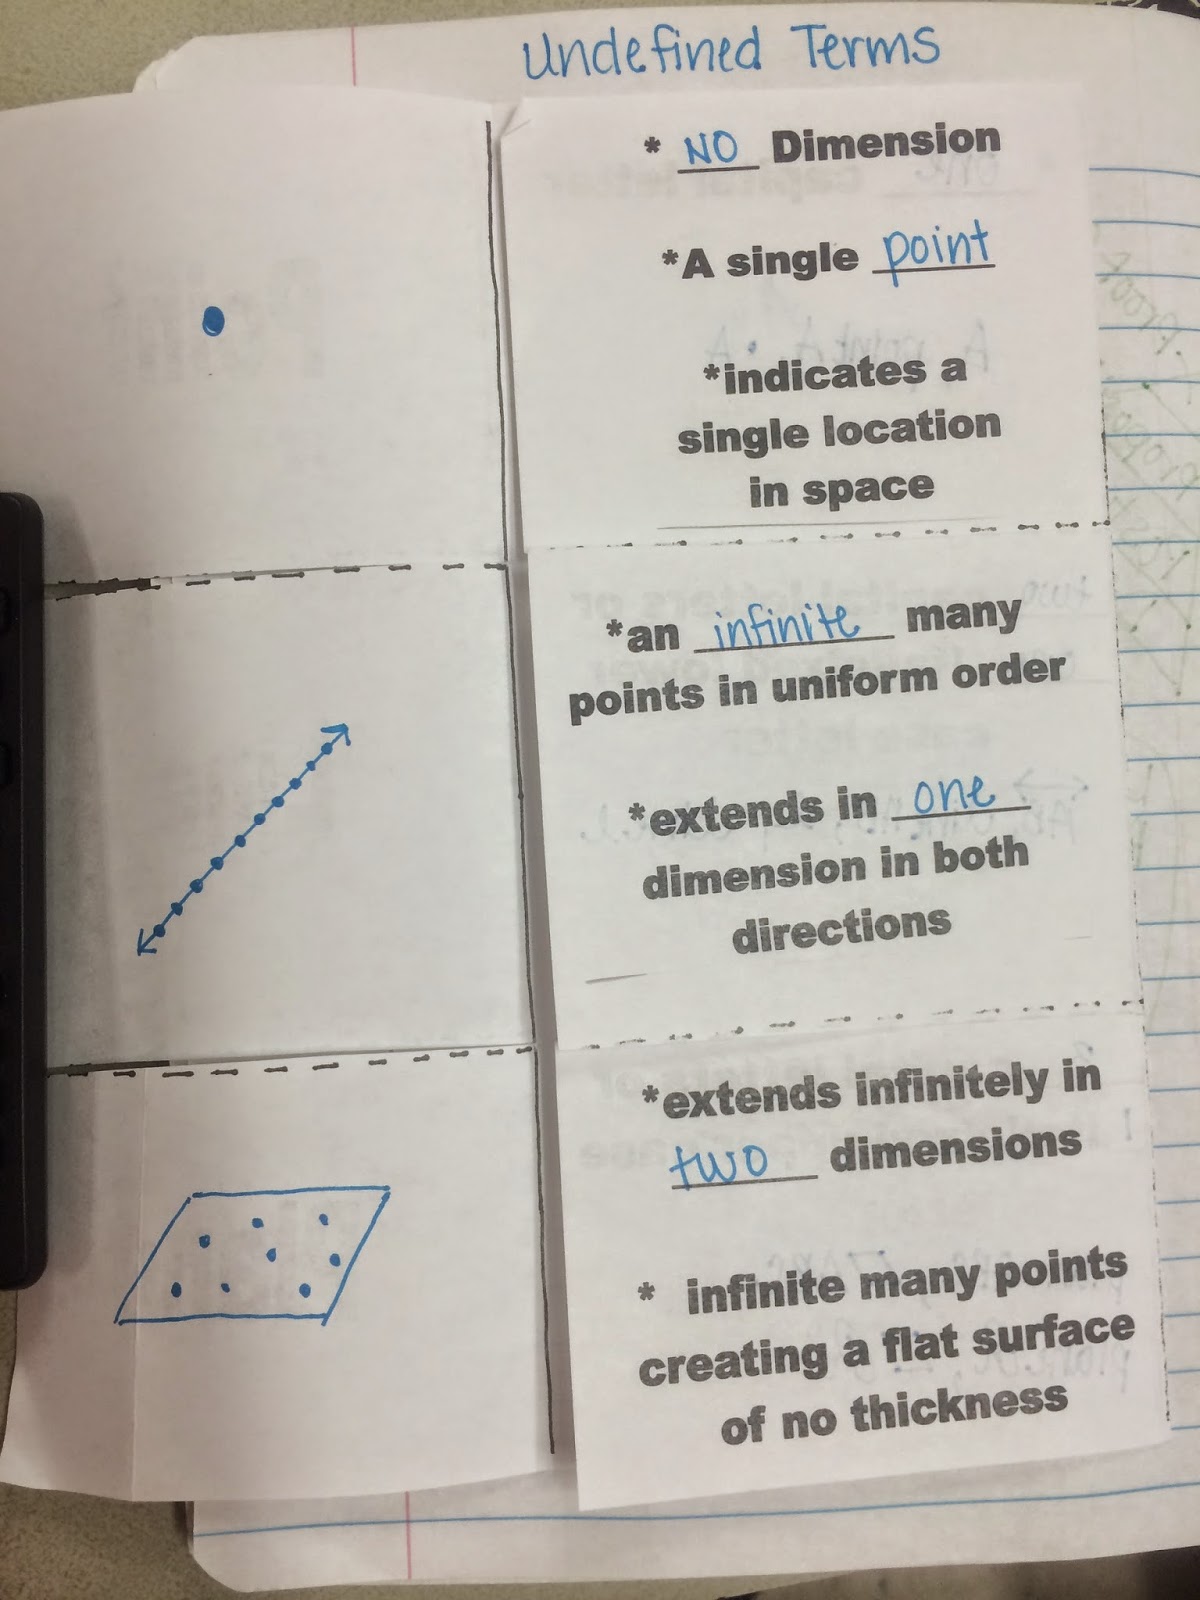 Undefined Terms
* NO Dimension
*A single point
*indicates a
single location
in space
*an infinite many
points in uniform order
*extends in one
dimension in both
directions
*extends infinitely in
two dimensions
* infinite many points
creating a flat surface
of no thickness